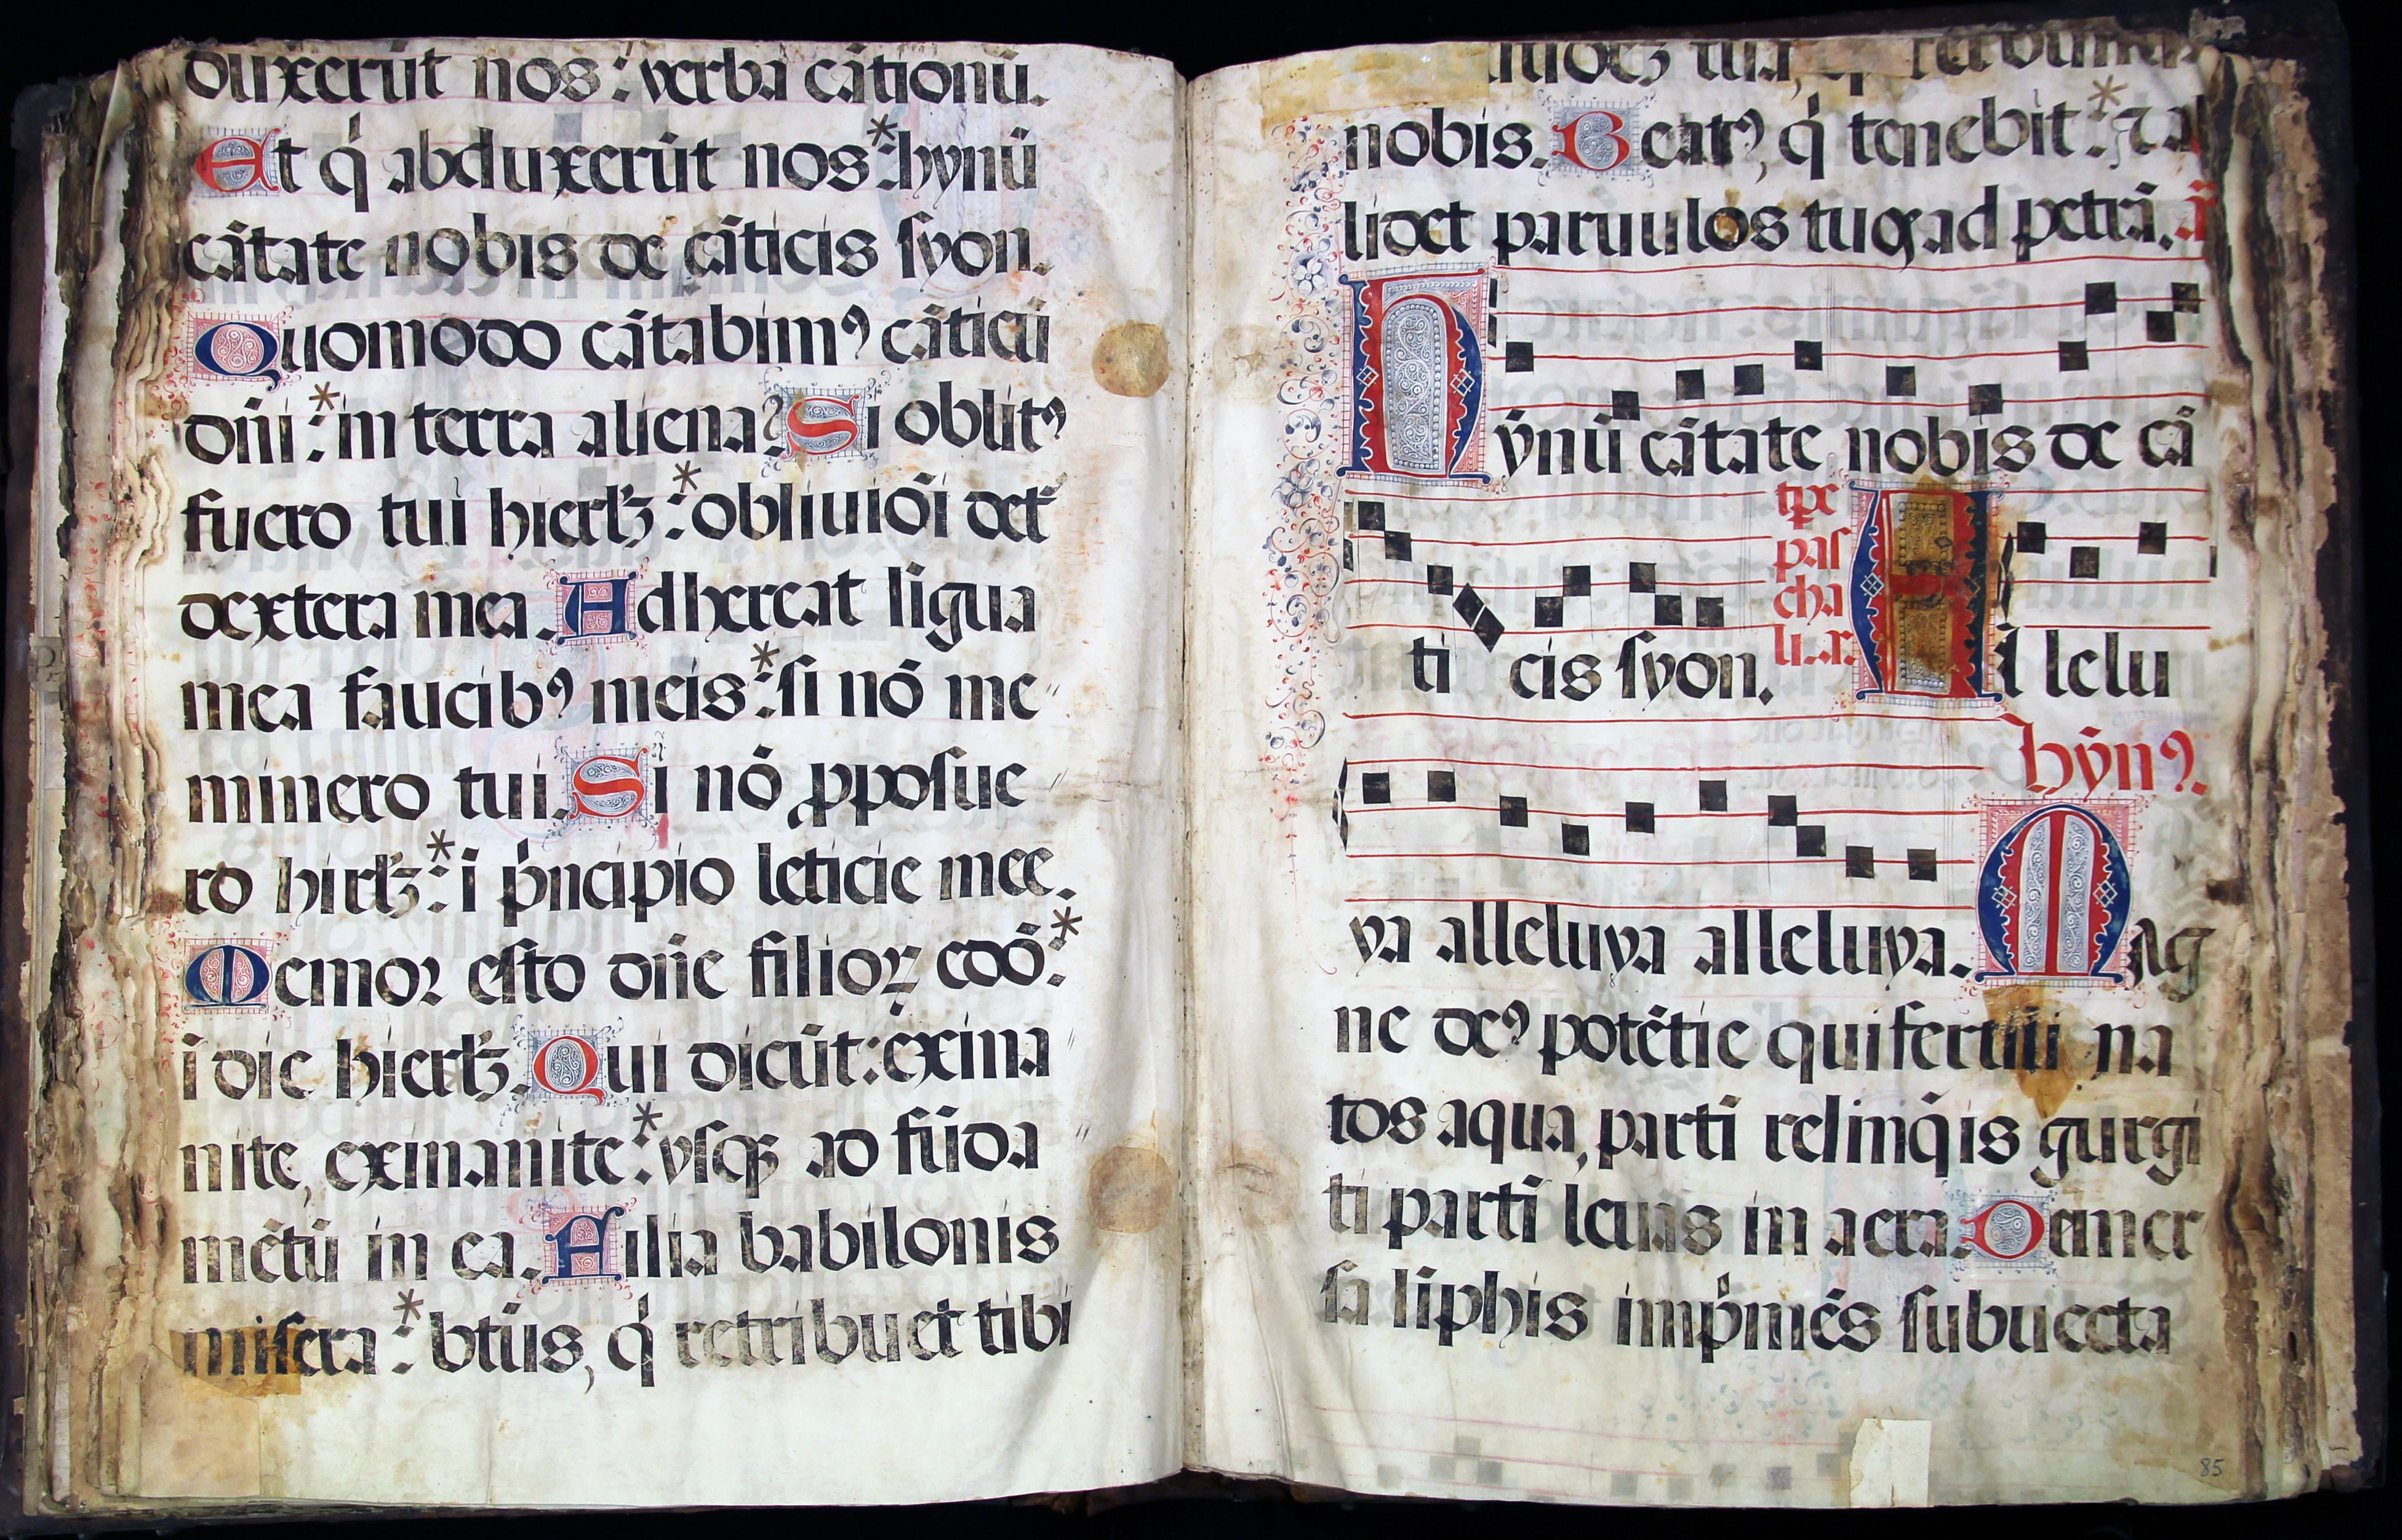 duxerūt nos : verba cātionū.
Et q̇ abduxerūt nos *: hynū
cātate nobis de cāticis syon.
Quomodo cātabimꝰ cāticū
dn̄i *: in terra aliena? Si oblitꝰ
fuero tui hierlꝫ *: obliuiōi det̄
dextera mea. Adhereat līgua
mea faucibꝰ meis *: si nō me〃
minero tui. Si nō ꝓposue〃
ro hirlꝫ *: ī ṗncipio leticie mee.
Memor esto dn̄e filioꝝ edō *:
ī die hierlꝫ. Qui dicūt : exina〃
nite, exinanite *: vsqꝫ ad fūda〃
mētū in ea. Filia babilonis
misera *: btūs, q̇ retribuet tibi
tuā, retribuisti
nobis. Beatꝰ, q̇ tenebit *: ⁊ al
lidet paruulos tuos ad petrā. ā
Hȳnū cātate nobis de cā
ti cis syon. tp̄e pas cha li. r. Al lelu
ya alleluya alleluya. hȳnꝰ. Mag
ne deꝰ potētie qui fertili na
tos aqua, partī relinq̄is gurgi
ti partī leuas in aera. Demer
sa līphis imṗmēs subuecta
85